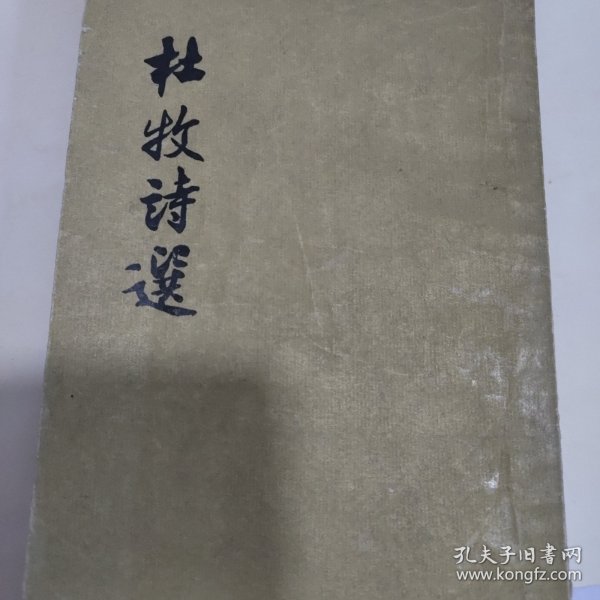 杜牧詩選
孔夫子旧書网
www.kongfz.com